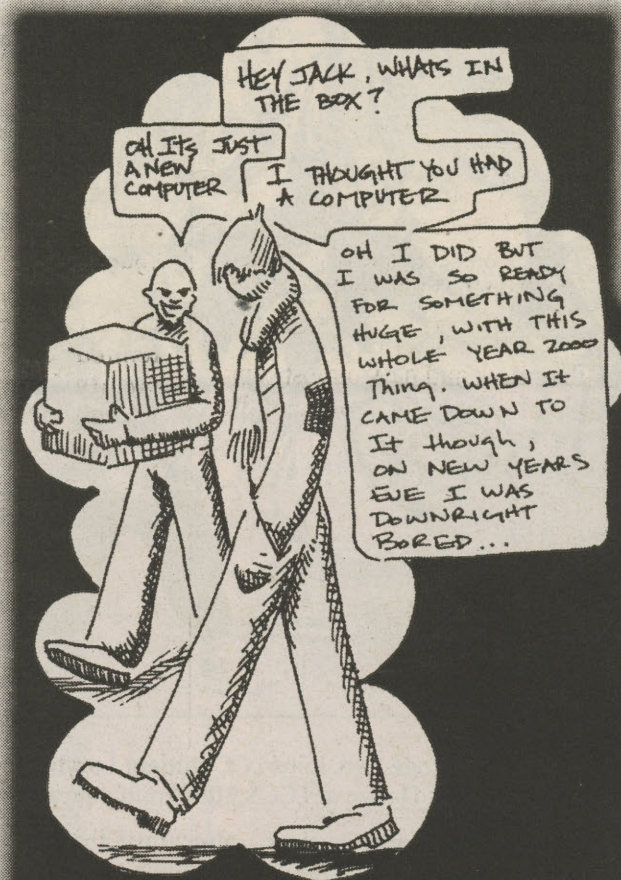 HEY JACK, WHATS IN
THE BOX?
OH ITS JUST
A NEW
COMPUTER
I THOUGHT YOU HAD
A COMPUTER
OH I DID BUT
I WAS SO READY
FOR SOMETHING
HUGE, WITH THIS
WHOLE YEAR 2000
Thing. WHEN IT
CAME DOWN TO
IT though,
ON NEW YEARS
EVE I WAS
DOWNRIGHT
BORED...